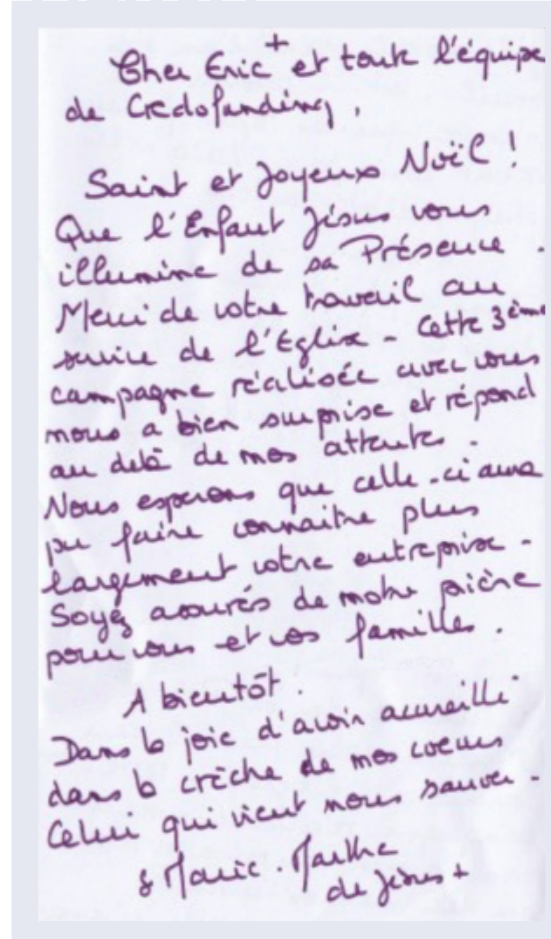 Cher Eric+ et toute l'équipe
de Credofunding,
Saint et Joyeux Noël !
Que l'Enfant Jésus vous
illumine de sa Présence.
Merci de votre travail au
service de l'Eglise - Cette 3ème
campagne réalisée avec vous
nous a bien surprise et répond
au delà de nos attentes.
Nous esperons que celle-ci aura
pu faire connaitre plus
largement votre entreprise -
Soyez assurés de notre prière
pour vous et vos familles.
A bientôt.
Dans la joie d'avoir accueilli
dans la crèche de nos coeurs
Celui qui vient nous sauver -
Sr Marie. Marthe
de Jésus +